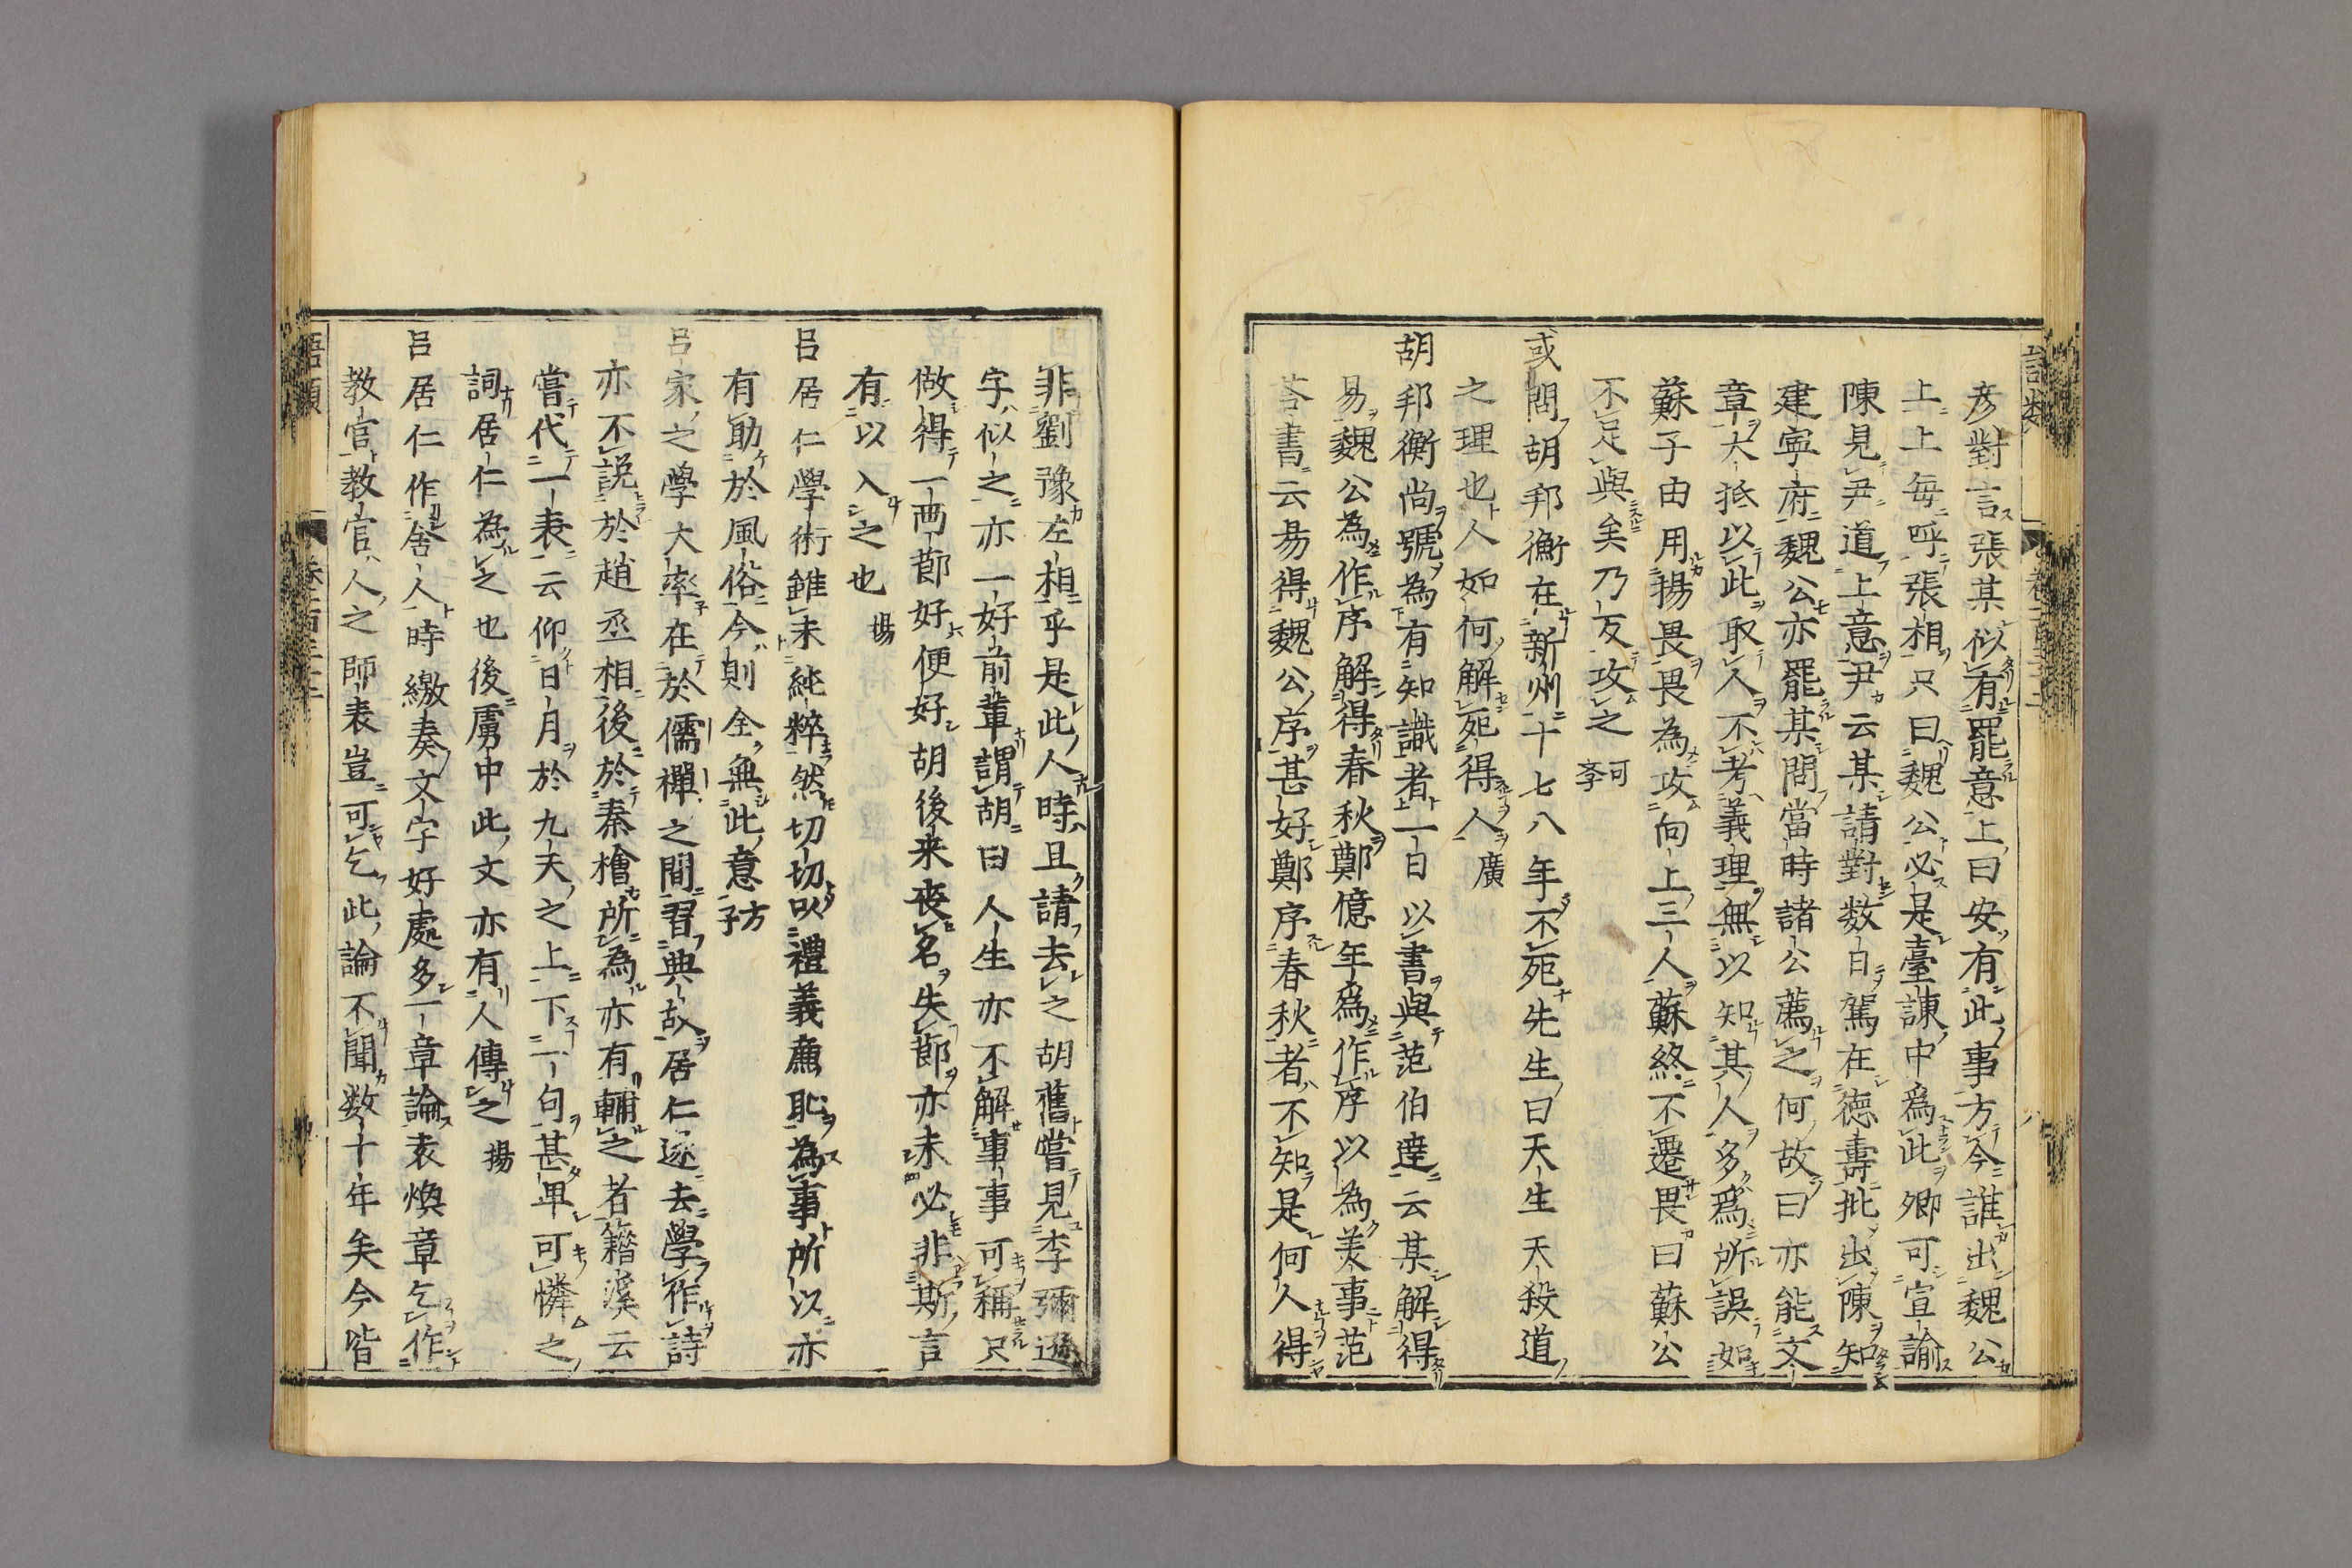 彦對言張某似有罷意上曰安有此事方今誰出魏公
上上每呼張相只曰魏公必是臺諫中為此卿可宣諭
陳見尹道上意尹云某請對数日駕在徳壽批出陳知
建寧府魏公亦罷某問當時諸公薦之何故曰亦能文
章大抵以此取人不考義理無以知其人多為所誤如
蘇子由用揚畏畏為攻向上三人蘇終不遷畏曰蘇公
不足與矣乃反攻之 可李
或問胡邦衡在新州十七八年不死先生曰天生天殺道
之理也人如何解死得人 廣
胡邦衡尚號為有知識者一日以書與范伯達云某解得
易魏公為作序解得春秋鄭億年為作序以為美事范
荅書云易得魏公序甚好鄭序春秋者不知是何人得
非劉豫左相乎是此人時且請去之胡舊嘗見李彌遜
字似之亦一好前輩謂胡曰人生亦不解事事可稱只
做得一両節好便好胡後来丧名失節亦未必非斯言
有以入之也 揚
呂居仁學術雖未純粹然切切以禮義廉恥為事所以亦
有助於風俗今則全無此意 方子
呂家之學大率在於儒禪之間習典故居仁遂去學作詩
亦不說於趙丞相後於秦檜所為亦有輔之者籍溪云
嘗代一表云仰日月於九天之上下一句甚卑可憐之
詞居仁為之也後虜中此文亦有人傳之 揚
呂居仁作舍人時繳奏文字好處多一章論袁煥章乞作
教官教官人之師表豈可乞此論不聞数十年矣今皆
語類